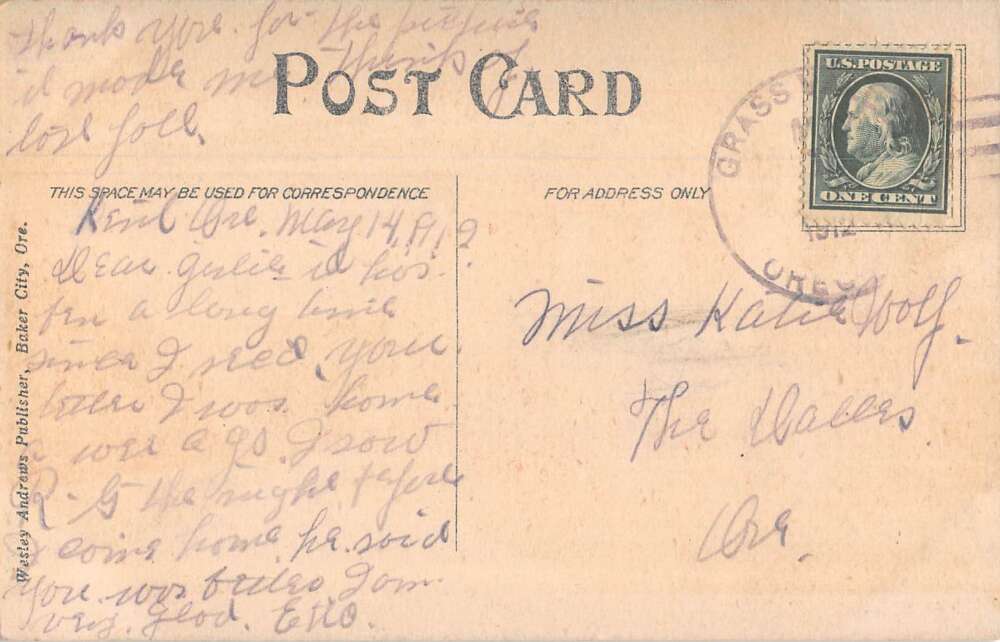 Thank you for the picture
it made me think of
last fall.
POST CARD
U.S. POSTAGE
ONE CENT
GRASS
1912
OREG
THIS SPACE MAY BE USED FOR CORRESPONDENCE
FOR ADDRESS ONLY
Wesley Andrews Publisher, Baker City, Ore.
Kent Ore. May 14, 1912
Dear girlie it has
ben a long time
since I rec'd your
letter I was home
a week ago. I saw
R-G the night before
I come home he said
you was better I am
very glad. Etto.
Miss Katie Wolf.
The Dalles
Ore.